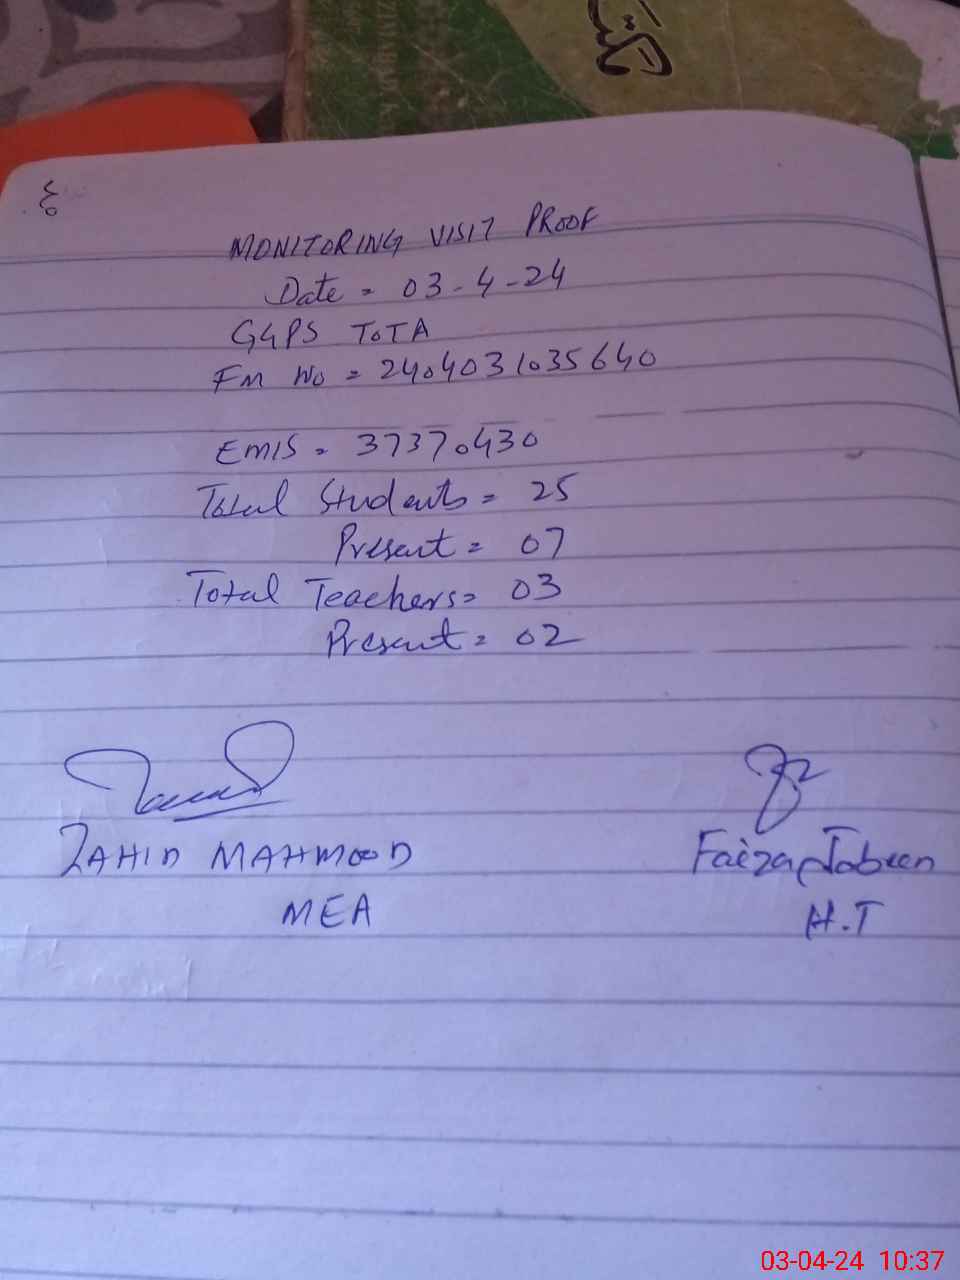 MONITORING VISIT PROOF
Date = 03-4-24
GGPS TOTA
FM NO = 2404031035640
EMIS = 37370430
Total Students = 25
Present = 07
Total Teachers = 03
Present = 02
ZAHID MAHMOOD
MEA
Faiza Jabeen
H.T
03-04-24 10:37